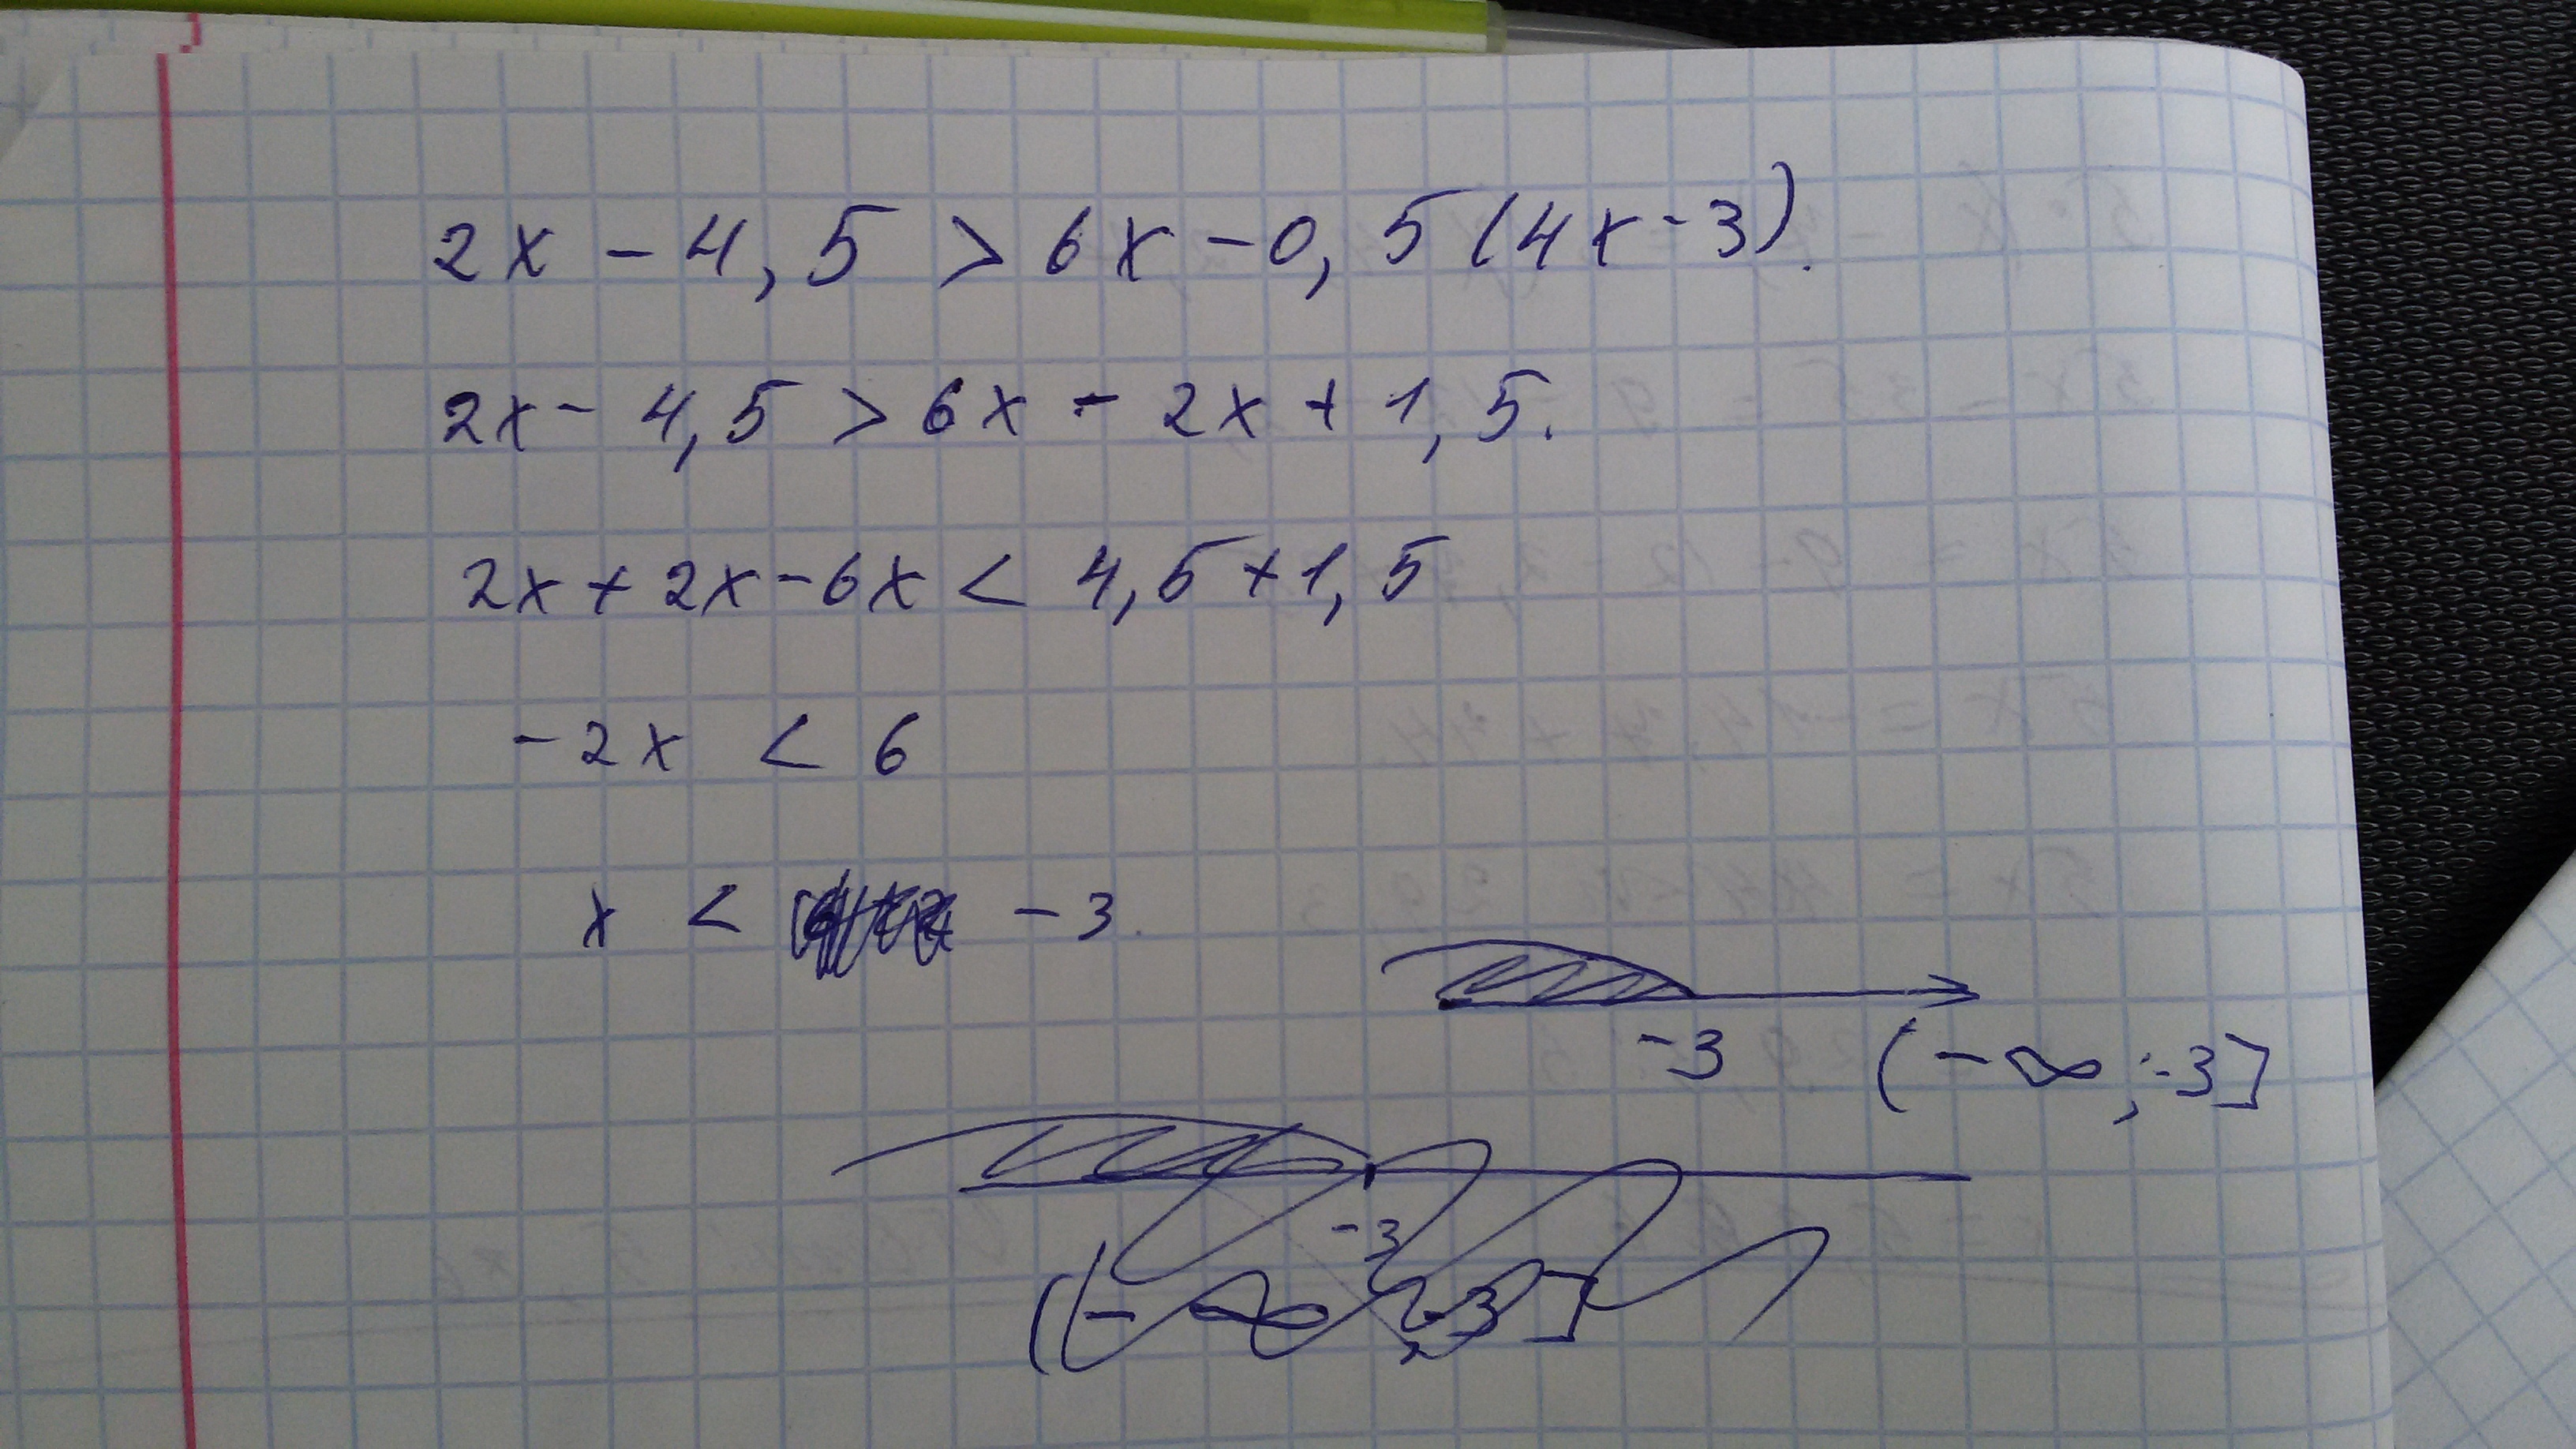 2x - 4,5 > 6x - 0,5(4x-3).
2x - 4,5 > 6x - 2x + 1,5.
2x + 2x - 6x < 4,5 + 1,5
-2x < 6
x < -3.
-3 (-∞; -3]
-3
(-∞; -3]